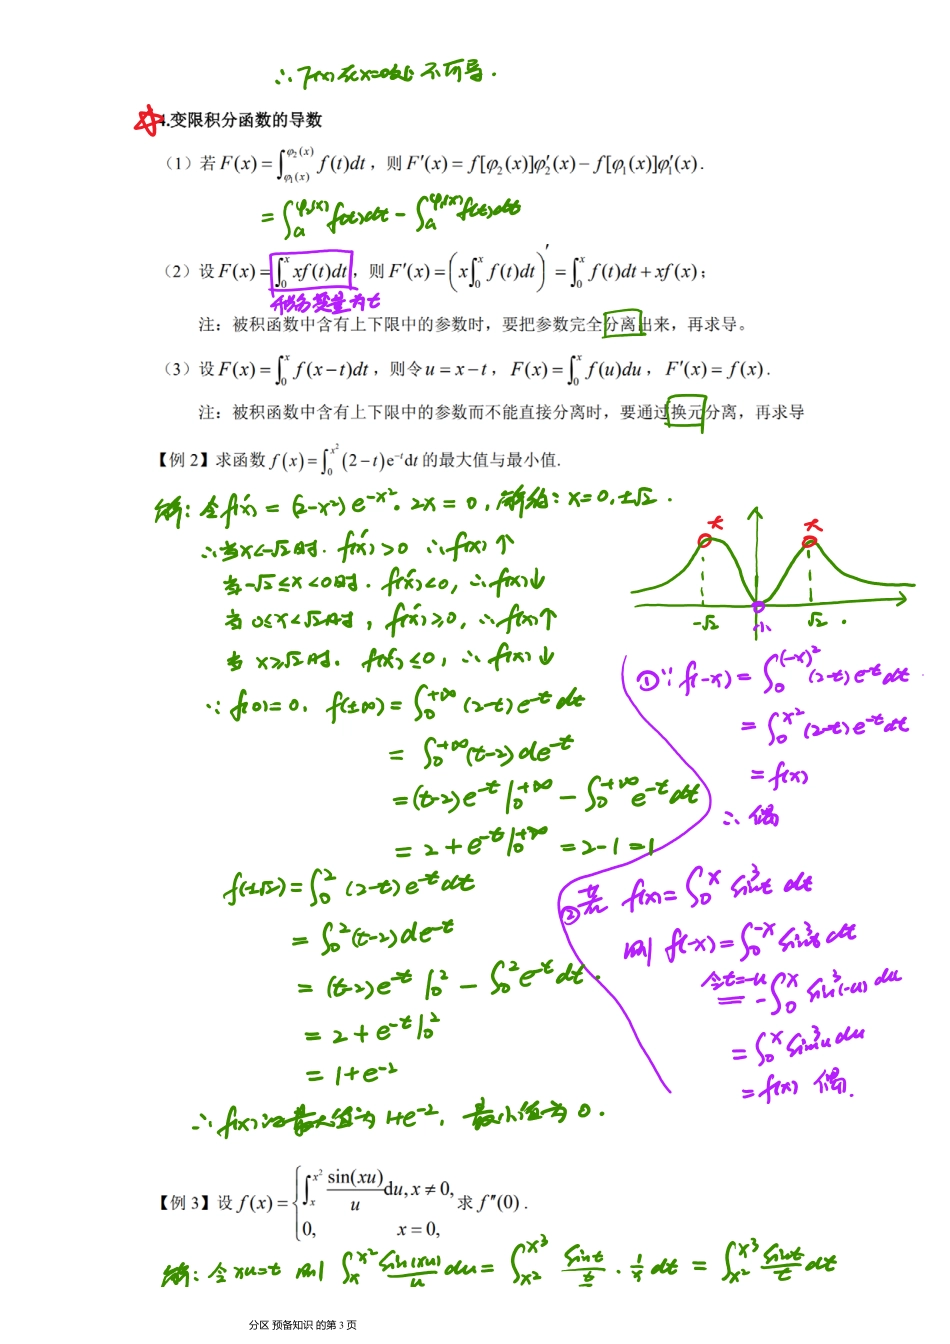 ∴ f(x) 在 x=0处 不可导.
4.变限积分函数的导数
（1）若 F(x) = ∫_{φ₁(x)}^{φ₂(x)} f(t)dt，则 F′(x) = f[φ₂(x)]φ₂′(x) − f[φ₁(x)]φ₁′(x).
= ∫_a^{φ₂(x)} f(t)dt − ∫_a^{φ₁(x)} f(t)dt
（2）设 F(x) = ∫_0^x xf(t)dt，则 F′(x) = (x∫_0^x f(t)dt)′ = ∫_0^x f(t)dt + xf(x)；
积分变量为t
注：被积函数中含有上下限中的参数时，要把参数完全分离出来，再求导。
（3）设 F(x) = ∫_0^x f(x−t)dt，则令 u = x−t，F(x) = ∫_0^x f(u)du，F′(x) = f(x).
注：被积函数中含有上下限中的参数而不能直接分离时，要通过换元分离，再求导
【例 2】求函数 f(x) = ∫_0^{x²} (2−t)e^{−t}dt 的最大值与最小值.
解：令 f′(x) = (2−x²) e^{−x²}·2x = 0，解得：x=0,±√2.
∴当x<−√2时. f′(x)>0 ∴f(x)↑
当−√2≤x<0时. f′(x)<0, ∴f(x)↓
当 0≤x<√2时, f′(x)≥0, ∴f(x)↑
当 x≥√2时. f′(x)≤0, ∴f(x)↓
大 大
−√2 小 √2.
∵f(0)=0, f(±∞) = ∫_0^{+∞} (2−t)e^{−t}dt
= ∫_0^{+∞} (t−2)de^{−t}
= (t−2)e^{−t}|_0^{+∞} − ∫_0^{+∞} e^{−t}dt
= 2+e^{−t}|_0^{+∞} = 2−1 = 1
f(±√2) = ∫_0^2 (2−t)e^{−t}dt
= ∫_0^2 (t−2)de^{−t}
= (t−2)e^{−t}|_0^2 − ∫_0^2 e^{−t}dt.
= 2+e^{−t}|_0^2
= 1+e^{−2}
∴f(x)的最大值为 1+e^{−2}, 最小值为 0.
①∵f(−x) = ∫_0^{(−x)²} (2−t)e^{−t}dt
= ∫_0^{x²} (2−t)e^{−t}dt
= f(x)
∴ 偶
②若 f(x) = ∫_0^x sin³t dt
则 f(−x) = ∫_0^{−x} sin³t dt
令t=−u = −∫_0^x sin³(−u) du
= ∫_0^x sin³u du
= f(x) 偶.
【例 3】设 f(x) = { ∫_x^{x²} sin(xu)/u du, x ≠ 0, 求 f″(0).
0, x = 0,
解：令 xu=t 则 ∫_x^{x²} sin(xu)/u du = ∫_{x²}^{x³} sint/(t/x) · 1/x dt = ∫_{x²}^{x³} sint/t dt
分区 预备知识 的第 3 页